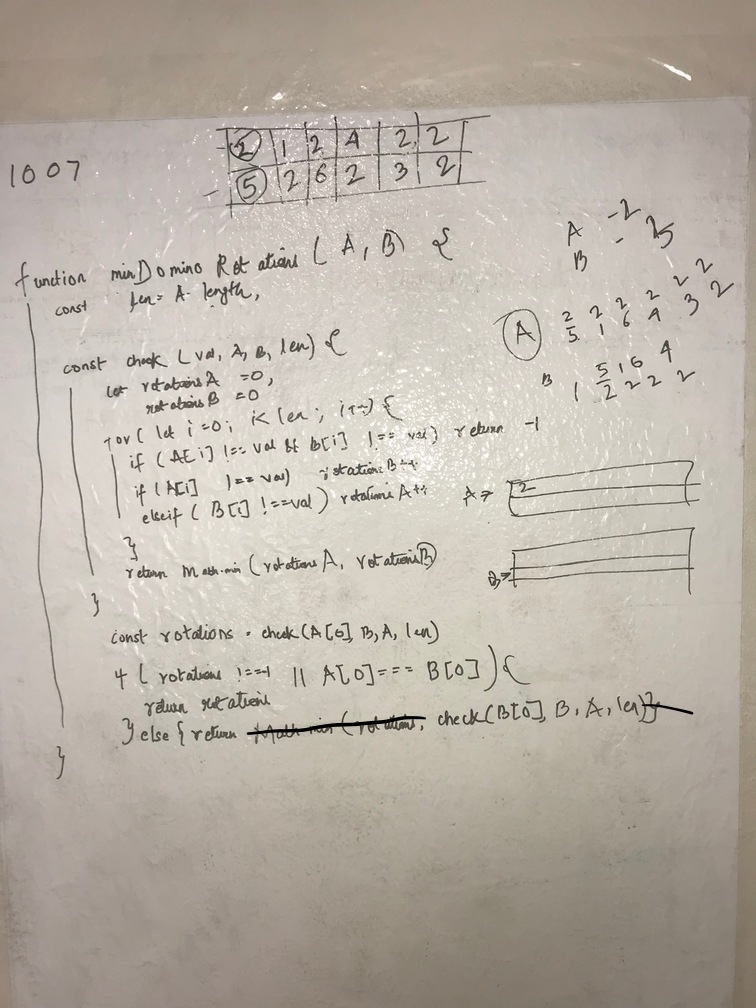 1007
2 1 2 4 2 2
5 2 6 2 3 2
A -2
B - 5
function minDomino Rotations (A, B) {
const len = A. length,
A 2 2 2 2 2 2
5 1 6 4 3 2
B 5 1 6 4
1 2 2 2 2
const check (val, A, B, len) {
let rotationsA =0,
rotationsB =0
for ( let i=0; i< len; i++) {
if (A[i] !== val && B[i] !== val) return -1
if (A[i] !== val) rotationsB++
elseif ( B[i] !==val) rotationsA++
}
return Math.min (rotationsA, rotationsB)
}
A → 2
B →
const rotations = check(A[0], B, A, len)
if ( rotations !==-1 || A[0]=== B[0] ) {
return rotations
} else { return Math.min (rotations, check(B[0], B, A, len)}
}